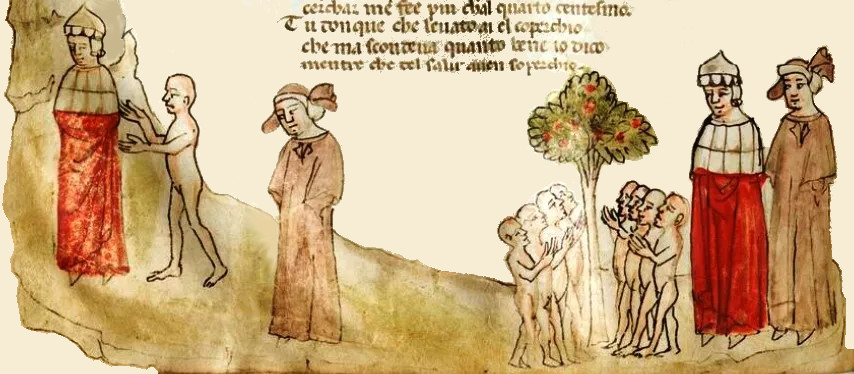 cerchar me fee piu chal quarto centesimo.
Tu donque che leuato ai el coperchio
che ma scondeua quanto bene io dico
mentre che del salir auen soperchio.